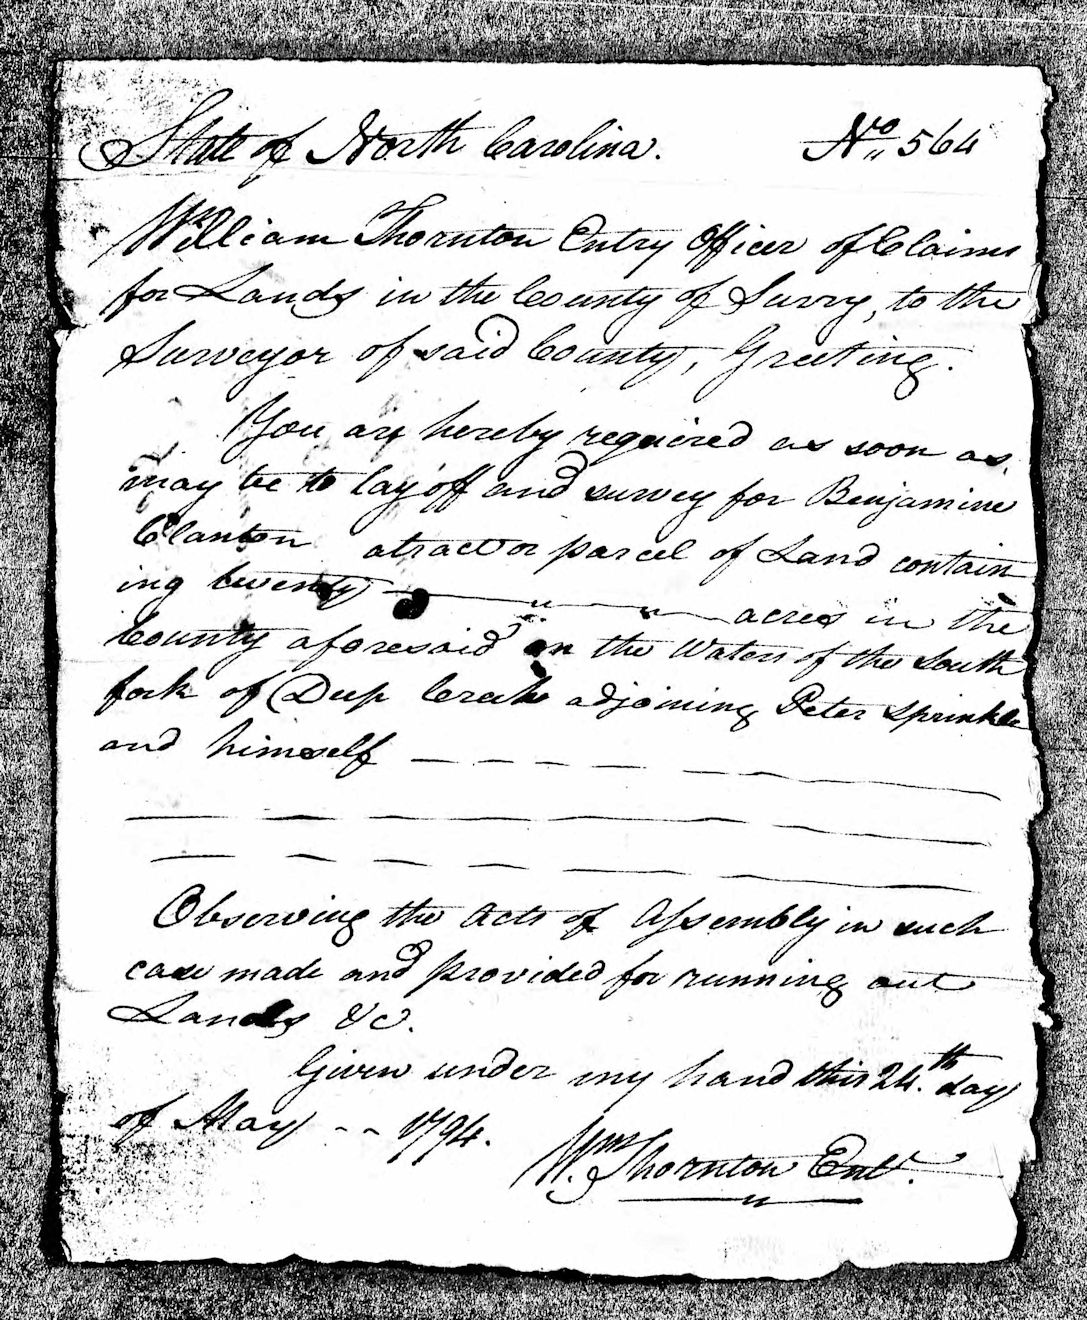 State of North Carolina. No 564
William Thornton Entry Officer of Claims
for Lands in the County of Surry, to the
Surveyor of said County, Greeting.
You are hereby required as soon as
may be to lay off and survey for Benjamine
Clanton a tract or parcel of Land contain
ing twenty acres in the
County aforesaid on the Waters of the South
fork of Deep Creek adjoining Peter Sprinkle
and himself
Observing the Acts of Assembly in such
case made and provided for running out
Lands &c.
Given under my hand this 24.th day
of May -- 1794.
Wm. Thornton Entr.